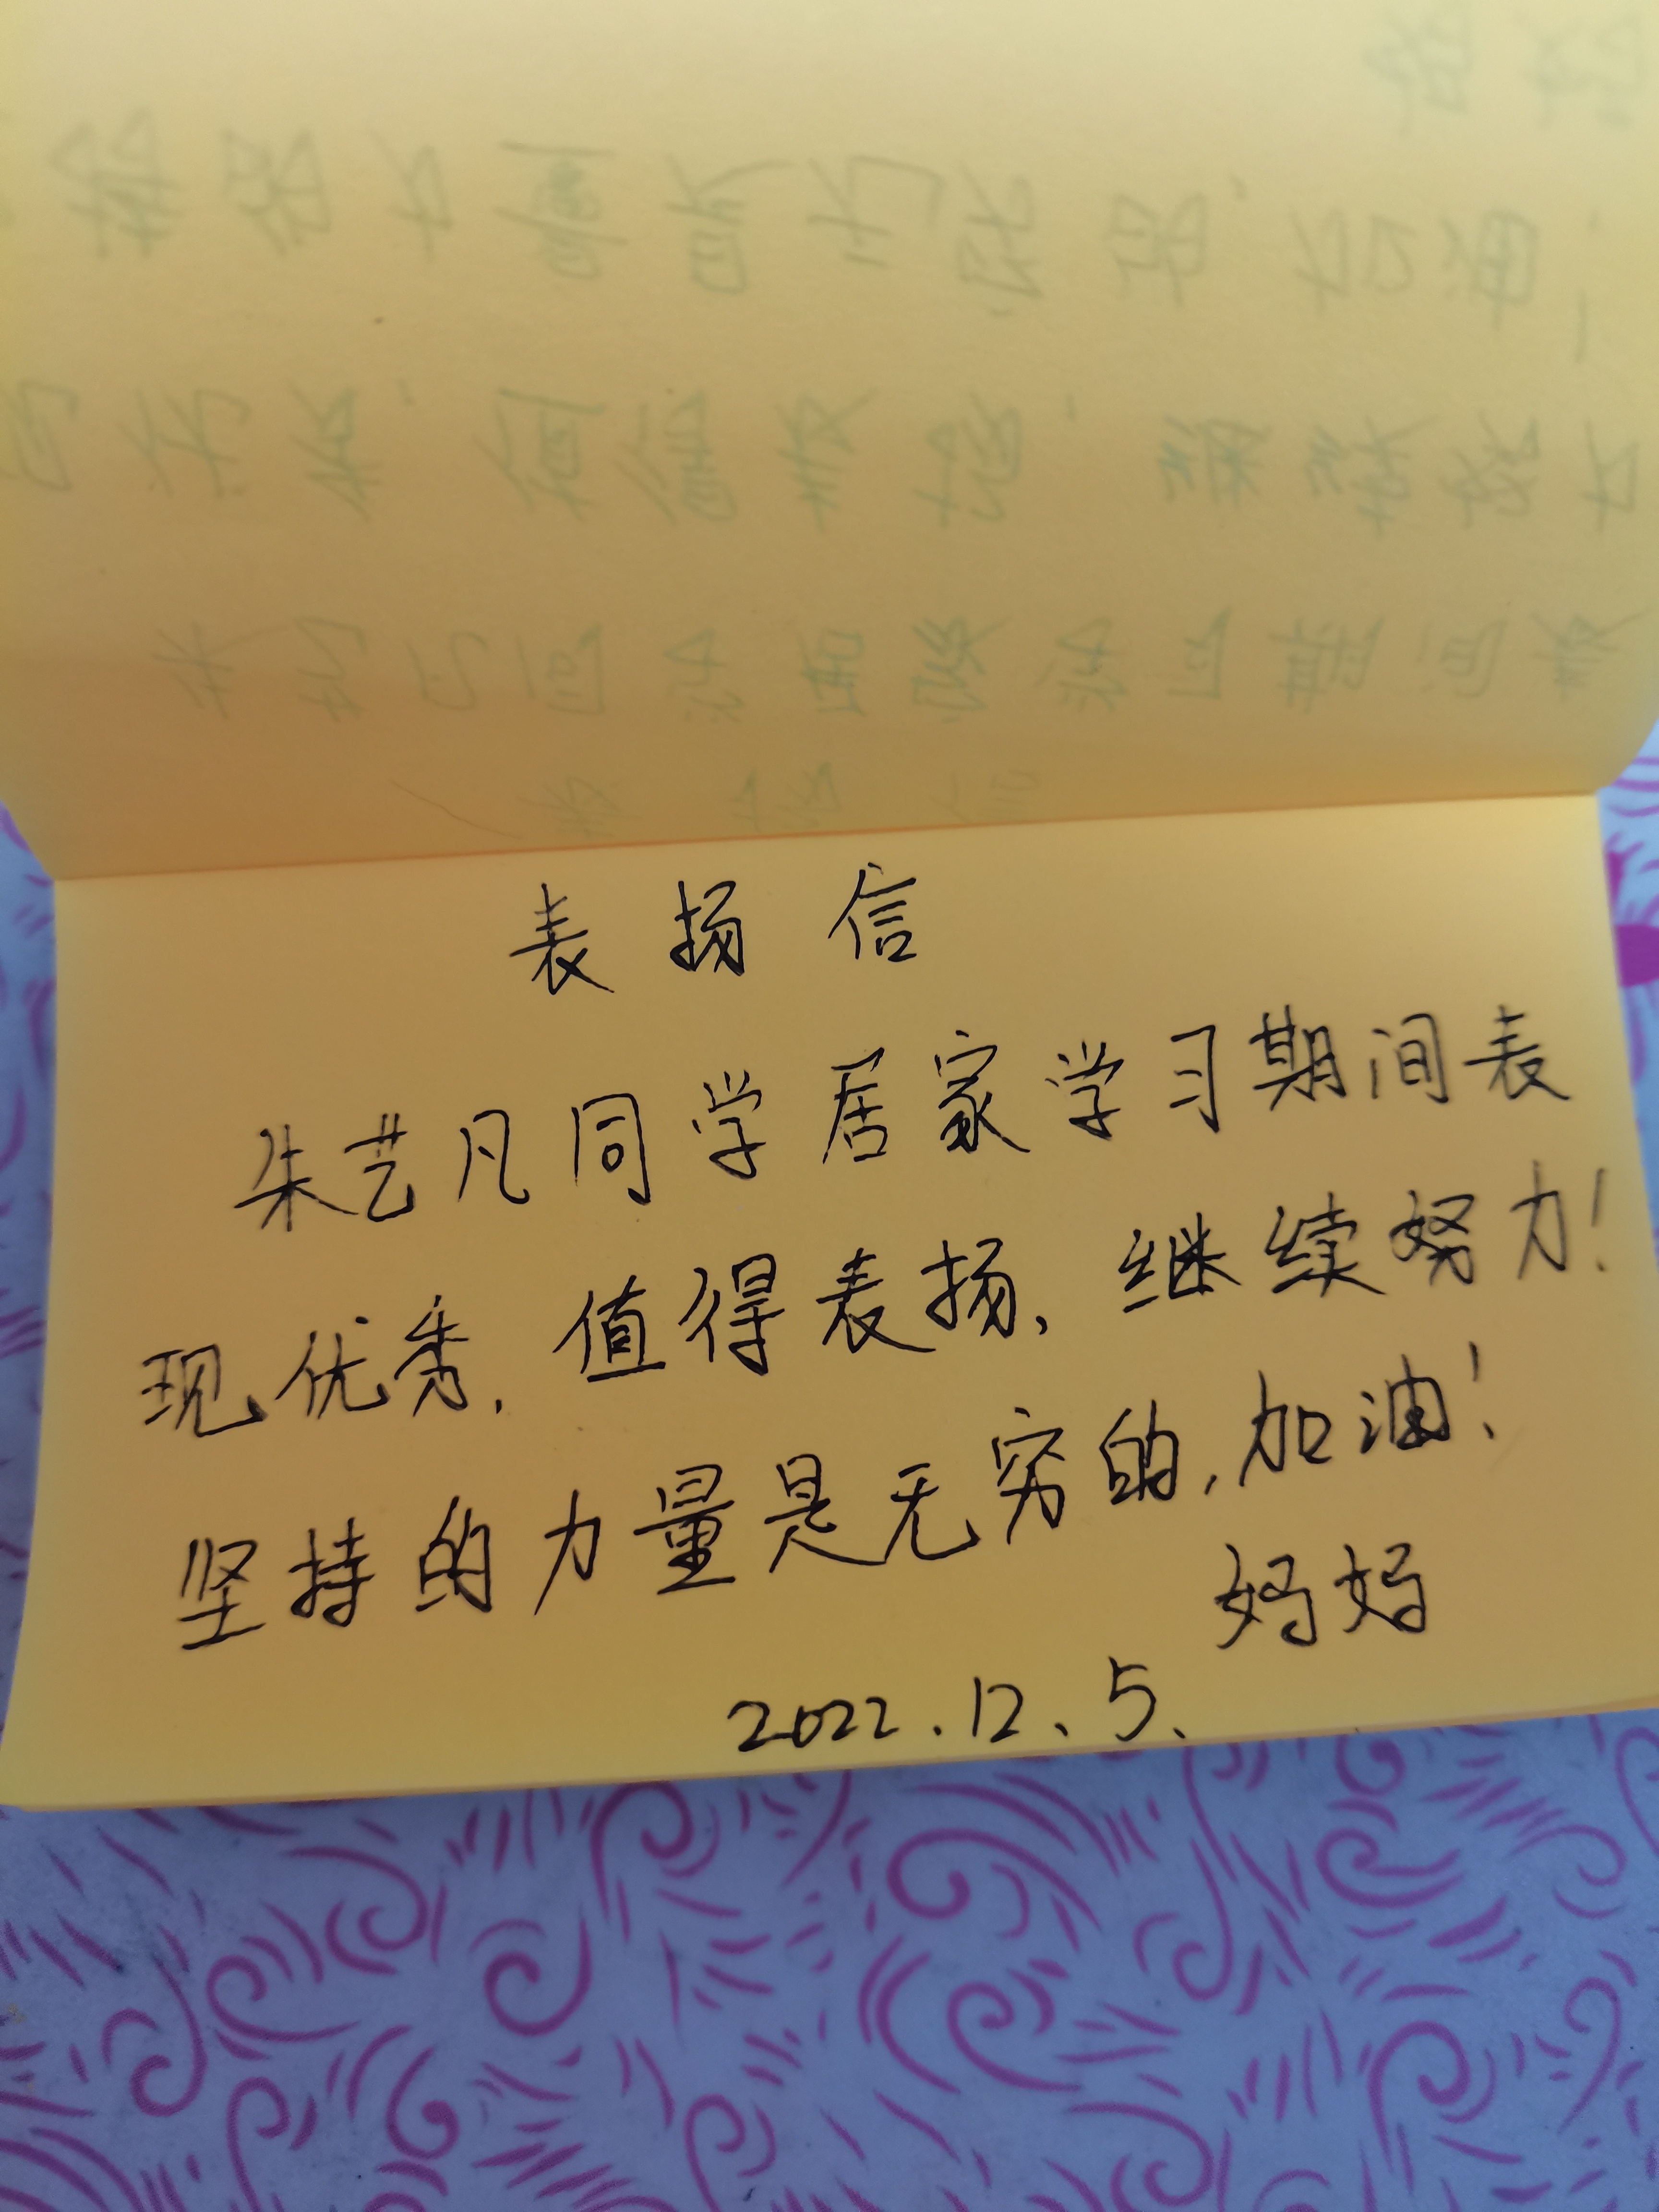 表扬信
朱艺凡同学居家学习期间表
现优秀，值得表扬，继续努力！
坚持的力量是无穷的，加油！
妈妈
2022.12、5、